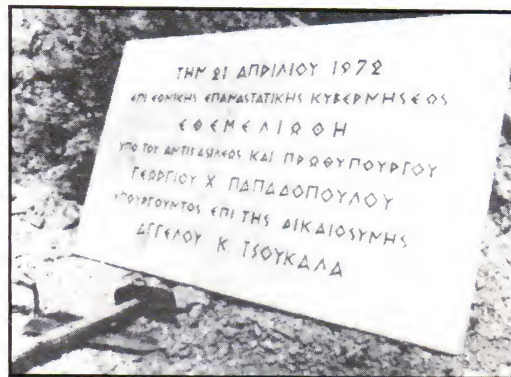 ΤΗΝ 21 ΑΠΡΙΛΙΟΥ 1972
ΕΠΙ ΕΘΝΙΚΗΣ ΕΠΑΝΑΣΤΑΤΙΚΗΣ ΚΥΒΕΡΝΗΣΕΩΣ
ΕΘΕΜΕΛΙΩΘΗ
ΥΠΟ ΤΟΥ ΑΝΤΙΒΑΣΙΛΕΩΣ ΚΑΙ ΠΡΩΘΥΠΟΥΡΓΟΥ
ΓΕΩΡΓΙΟΥ Χ ΠΑΠΑΔΟΠΟΥΛΟΥ
ΥΠΟΥΡΓΟΥΝΤΟΣ ΕΠΙ ΤΗΣ ΔΙΚΑΙΟΣΥΝΗΣ
ΑΓΓΕΛΟΥ Κ. ΤΣΟΥΚΑΛΑ